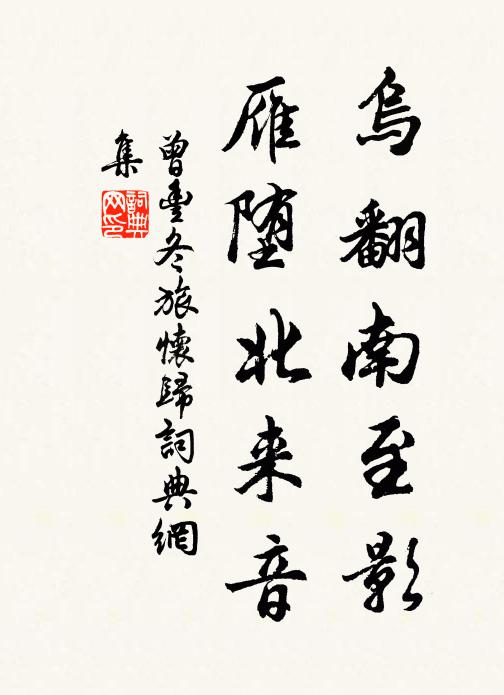 烏翻南至影
雁堕北来音
曾豊冬旅懷歸詞典網
集
詞典
网印